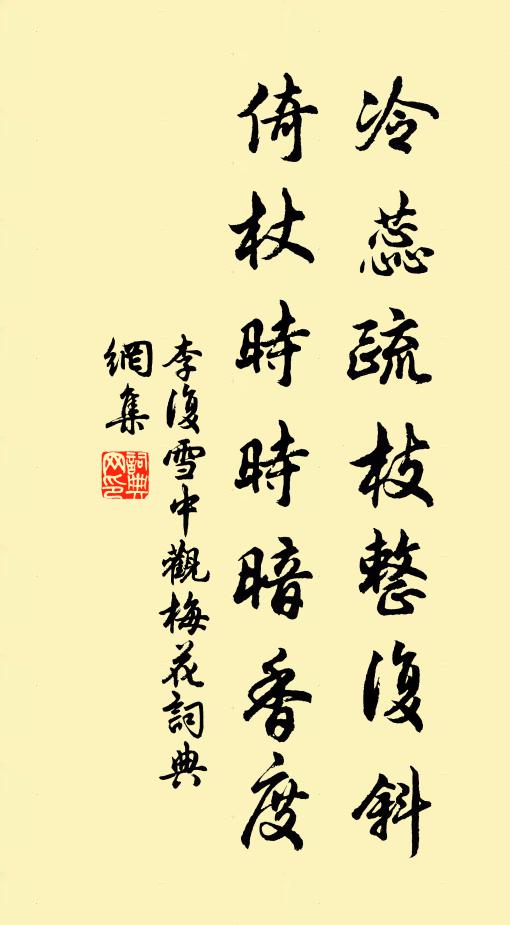 冷蕊疏枝整復斜
倚杖時時暗香度
李復雪中觀梅花詞典
網集
詞典網印